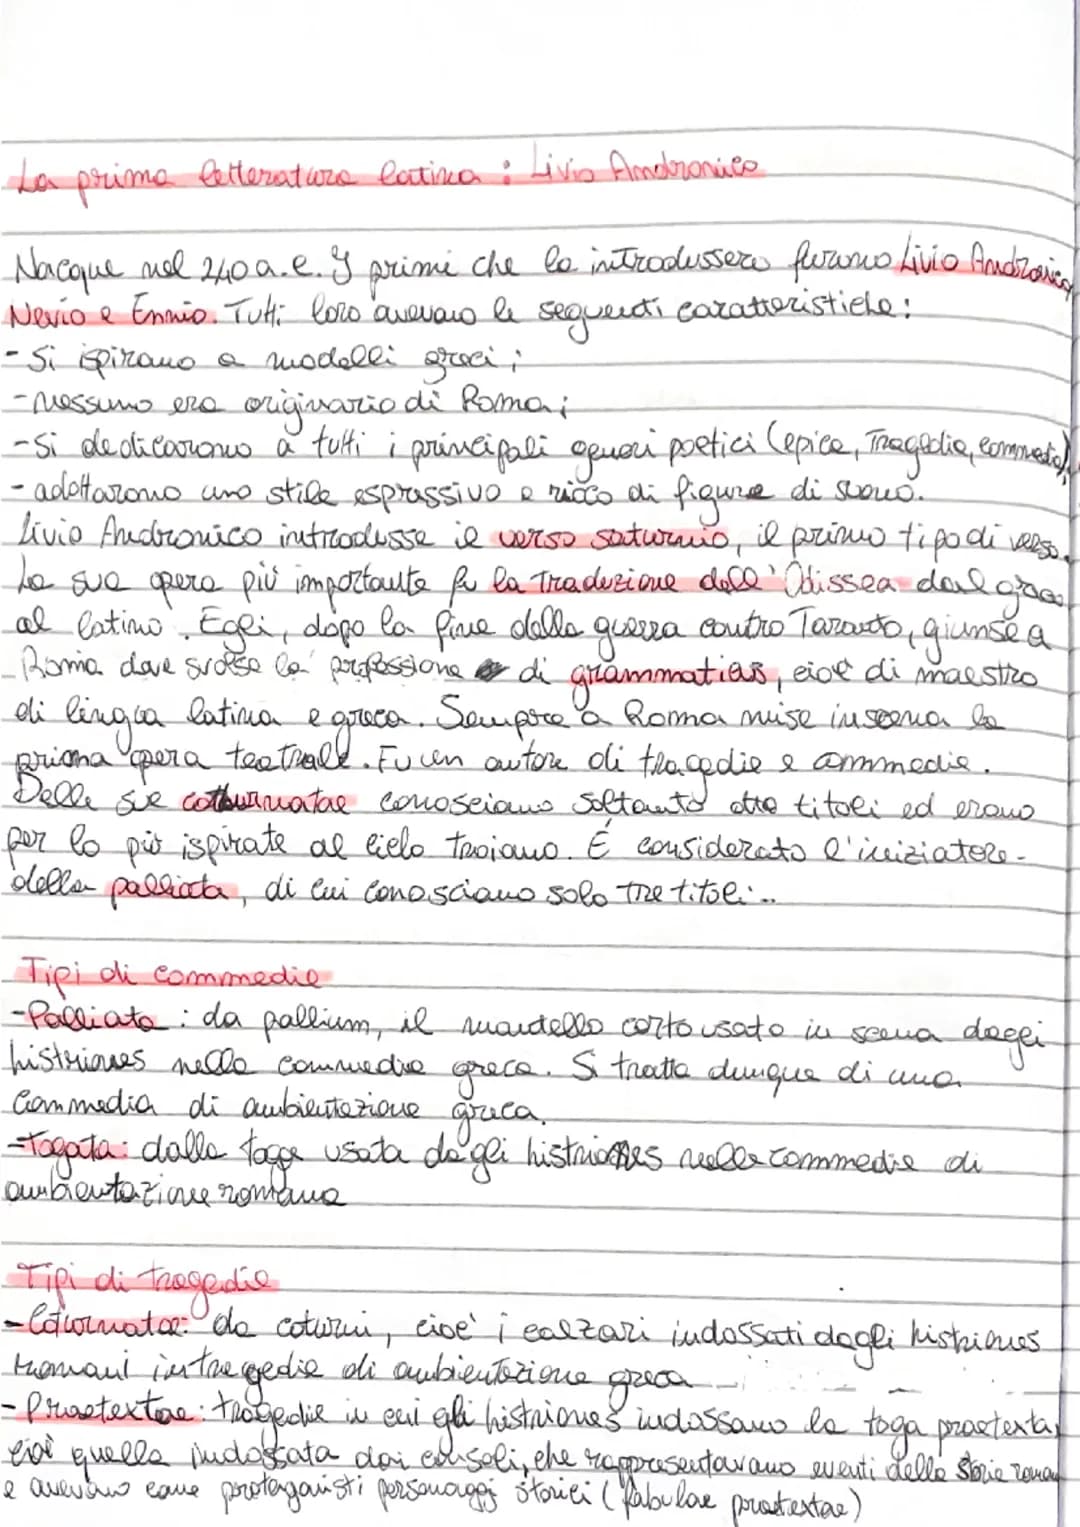 La prima letteratura latina: Livio Andronico
Nacque nel 240 a.e. I primi che la introdussero furano Livio Andronico,
Nevio e Ennio. Tutti loro avevano le seguenti caratteristiche:
- Si ispirano a modelli greci;
- nessuno era originario di Roma;
- Si dedicarono a tutti i principali generi poetici (epica, Tragedia, commedia);
- adottarono uno stile espressivo e ricco di figure di suono.
Livio Andronico introdusse il verso saturnio, il primo tipo di verso.
La sua opera più importante fu la Traduzione dell'Odissea dal greco
al latino. Egli, dopo la fine della guerra contro Taranto, giunse a
Roma dove svolse la professione di grammaticus, cioè di maestro
di lingua latina e greca. Sempre a Roma mise in scena la
prima opera teatrale. Fu un autore di tragedie e commedie.
Delle sue cothurnatae conosciamo soltanto otto titoli ed erano
per lo più ispirate al ciclo troiano. È considerato l'iniziatore
della palliata, di cui conosciamo solo tre titoli..
Tipi di commedie
- Palliata: da pallium, il mantello corto usato in scena dagli
histriones nelle commedie greca. Si tratta dunque di una
commedia di ambientazione greca.
- Togata: dalla toga usata dagli histriones nelle commedie di
ambientazione romana
Tipi di tragedie
- Coturnatae: da coturni, cioè i calzari indossati dagli histriones
romani in tragedie di ambientazione greca
- Praetextae: tragedie in cui gli histriones indossano la toga praetexta,
cioè quella indossata dai consoli, che rappresentavano eventi della storia romana
e avevano come protagonisti personaggi storici (fabulae praetextae)